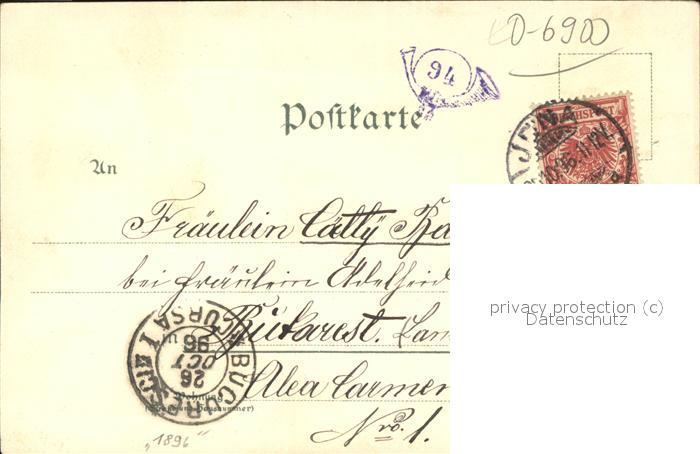 D-6900
94
Postkarte
REICHSPOST
JENA
An
Fräulein Cátly
bei Fräulein Adelheid
privacy protection (c)
Datenschutz
in Bukarest.
Alea Carmen
Nro. 1.
BUCURESCI
CURSA I
26
OCT
96
Wohnung
(Straße und Hausnummer)
„1896“